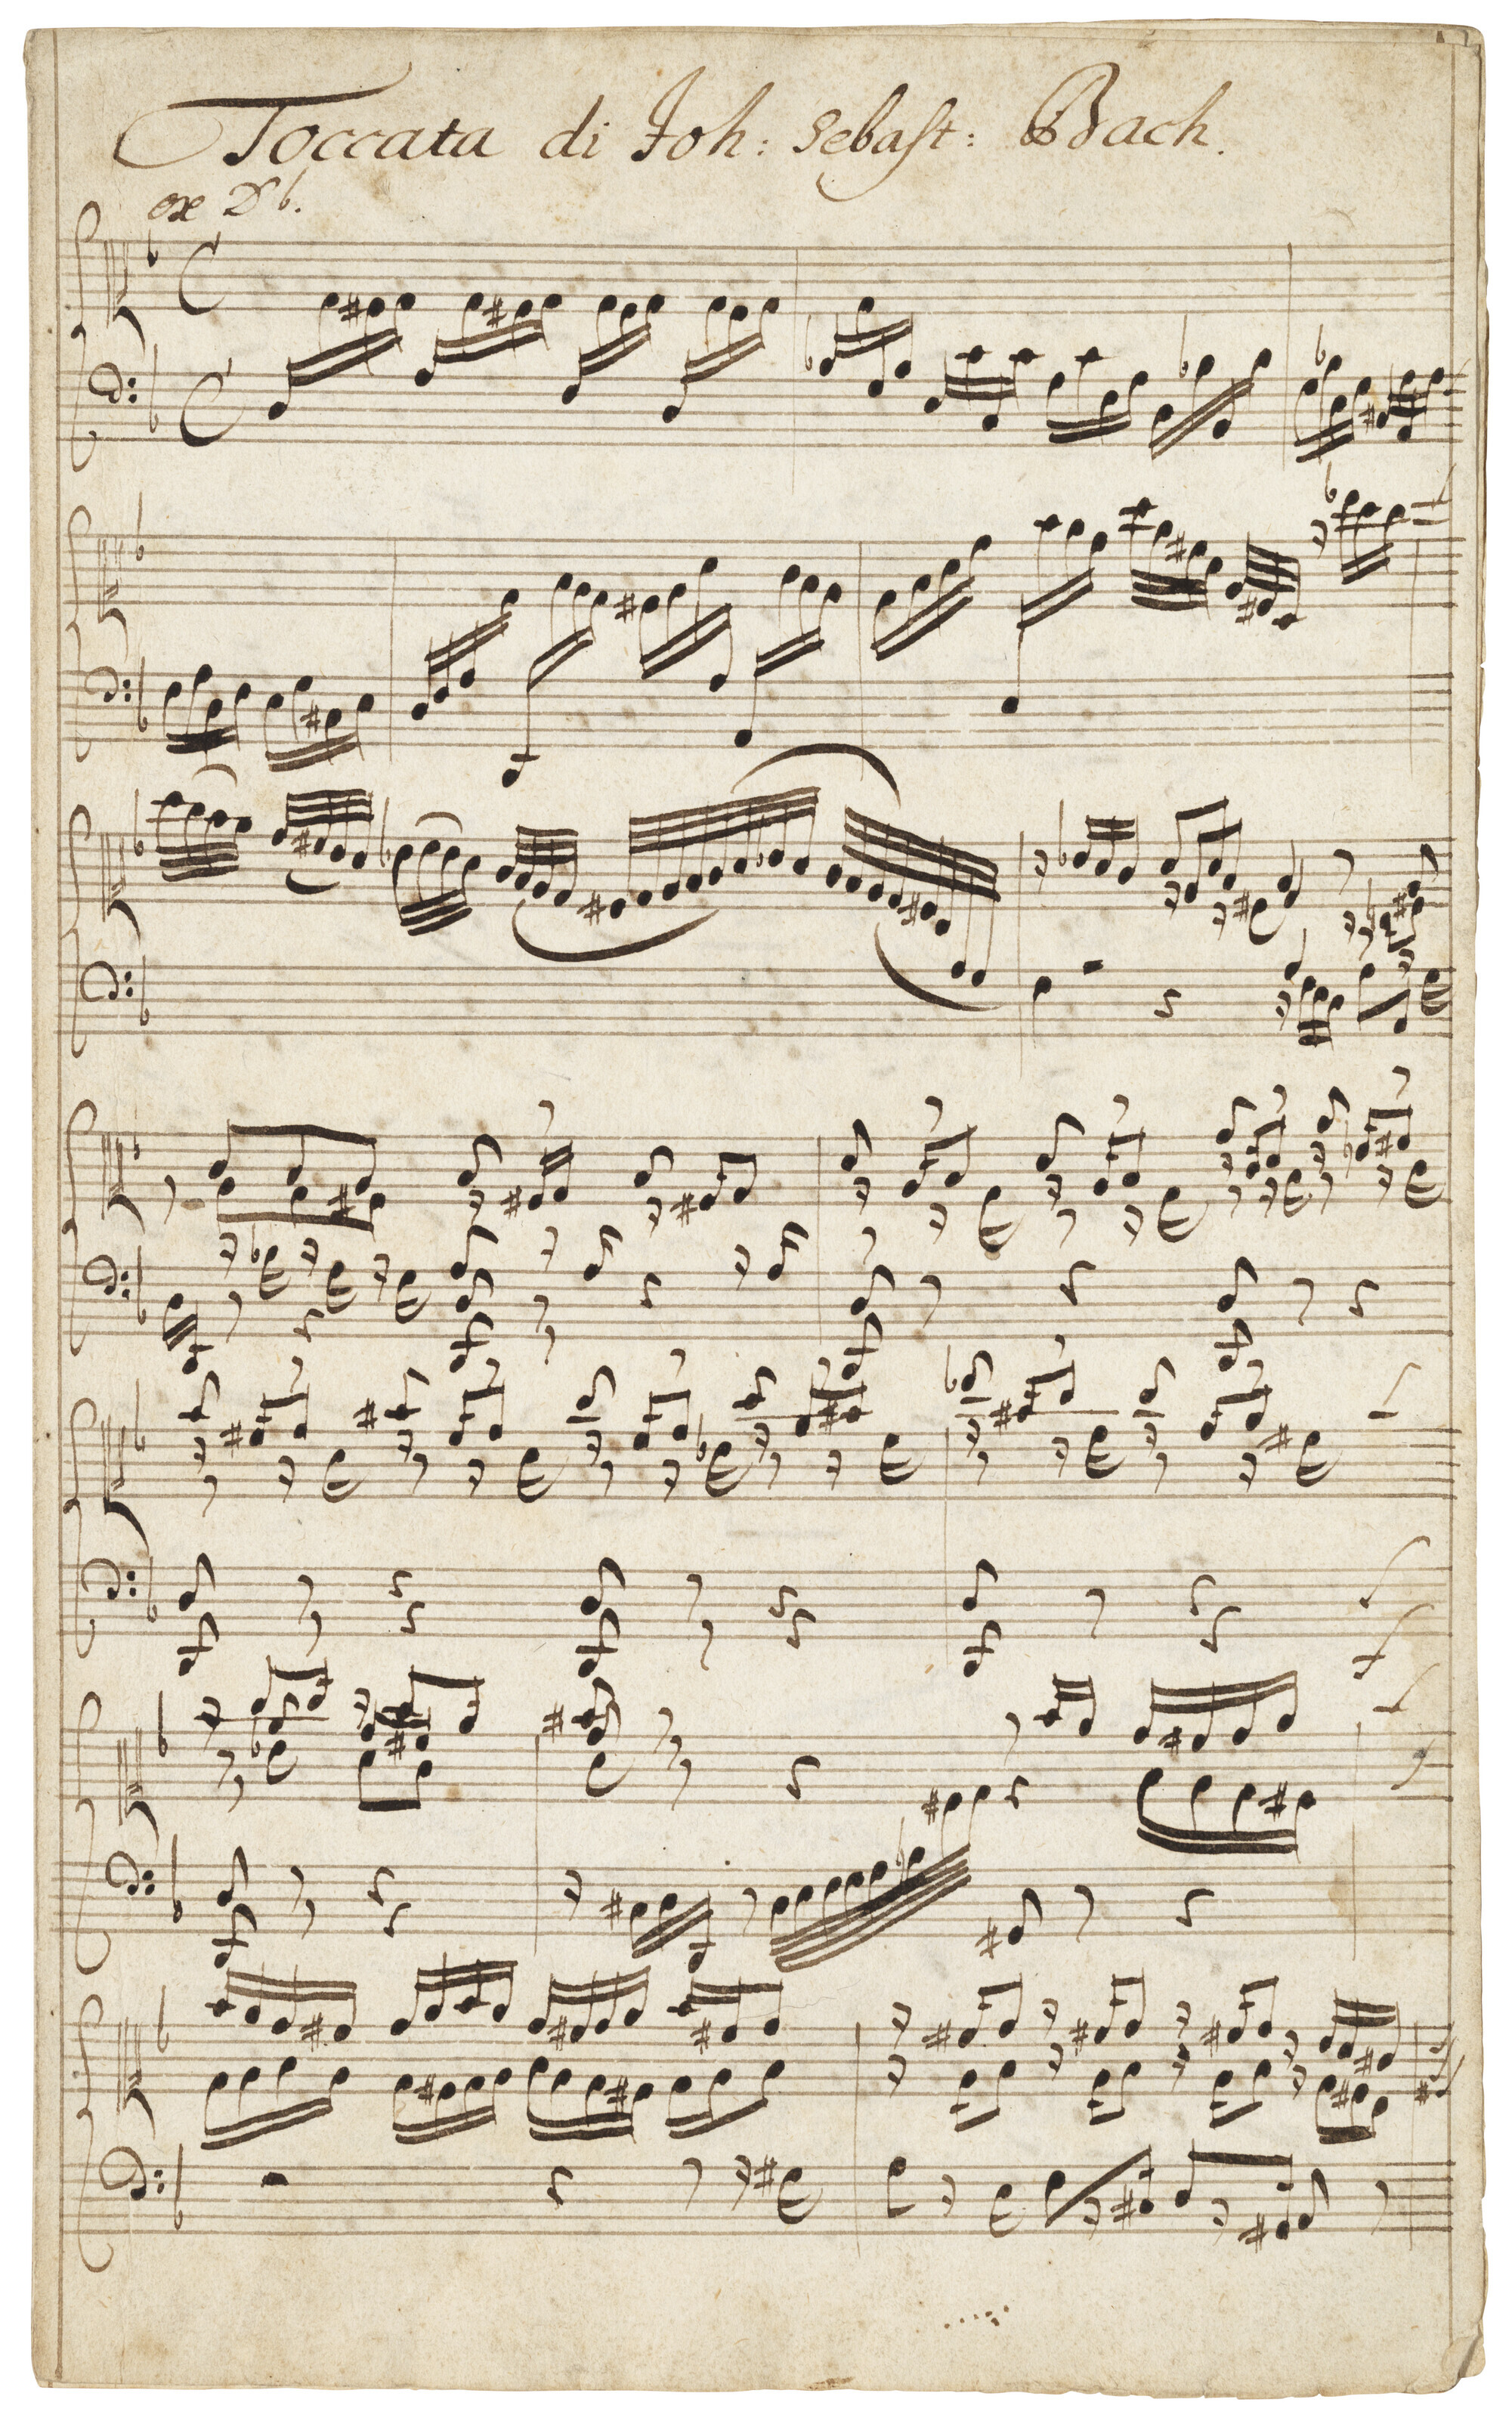 Toccata di Joh: Sebast: Bach.
ex D b.